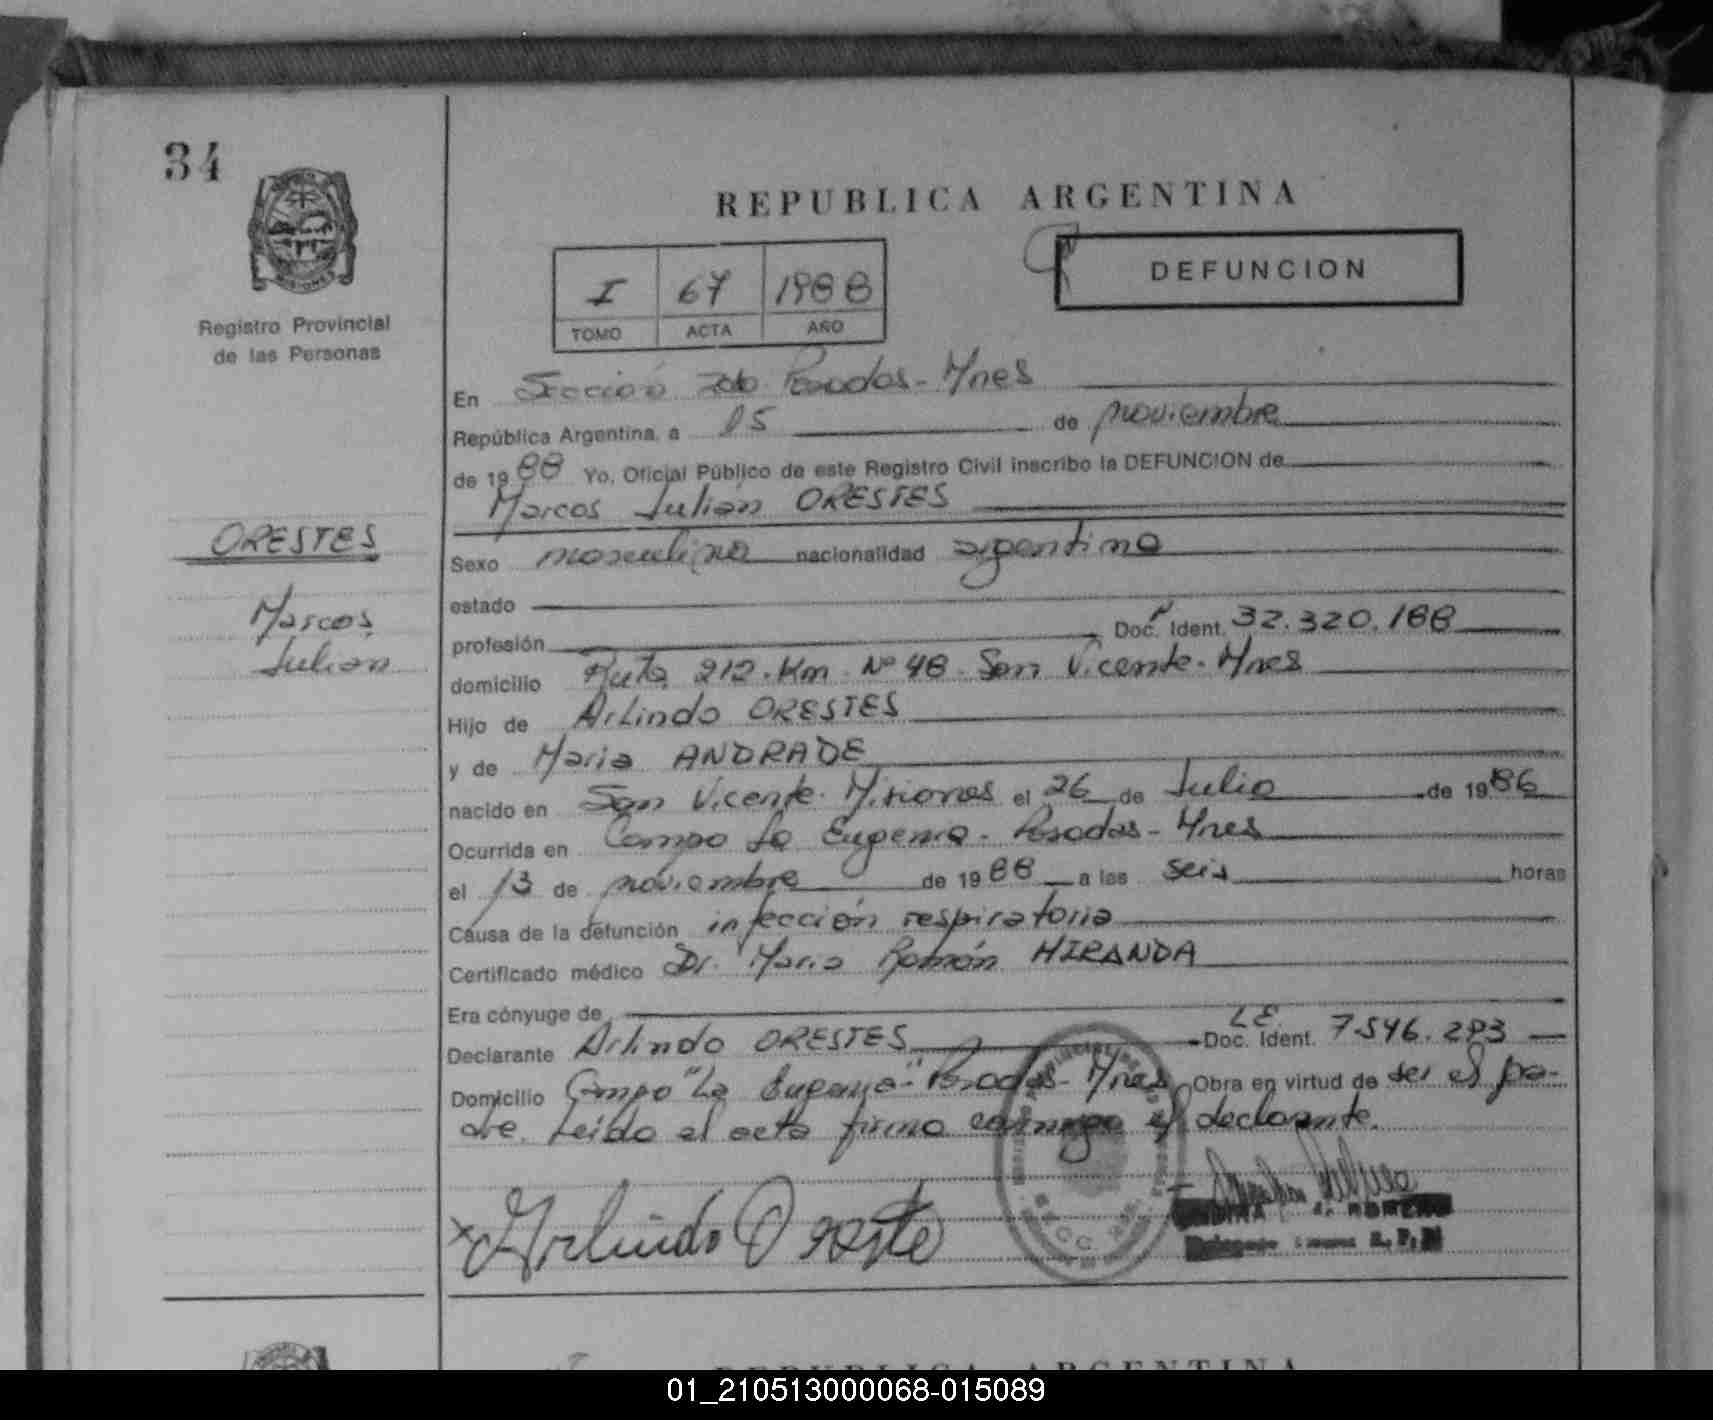 34
Registro Provincial
de las Personas
REPUBLICA ARGENTINA
DEFUNCION
I 67 1988
TOMO ACTA AÑO
En Sección 2da Posadas - Mnes
República Argentina, a 15 de noviembre
de 1988 Yo, Oficial Público de este Registro Civil inscribo la DEFUNCION de
Marcos Julián ORESTES
ORESTES
Marcos
Julian
Sexo masculino nacionalidad argentina
estado
profesión Doc. Ident. 32.320.188
domicilio Ruta 212. Km Nº 48. San Vicente. Mnes
Hijo de Arlindo ORESTES
y de Maria ANDRADE
nacido en San Vicente. Misiones el 26 de Julio de 1986
Ocurrida en Campo La Eugenia - Posadas - Mnes
el 13 de noviembre de 1988 a las seis horas
Causa de la defunción infección respiratoria
Certificado médico Dr. Mario Román MIRANDA
Era cónyuge de
Declarante Arlindo ORESTES LE Doc. Ident. 7546.293
Domicilio Campo "La Eugenia" - Posadas - Mnes Obra en virtud de ser el pa-
dre. Leido el acta firma conmigo el declarante.
x Arlindo Oreste
REPUBLICA ARGENTINA
01_210513000068-015089